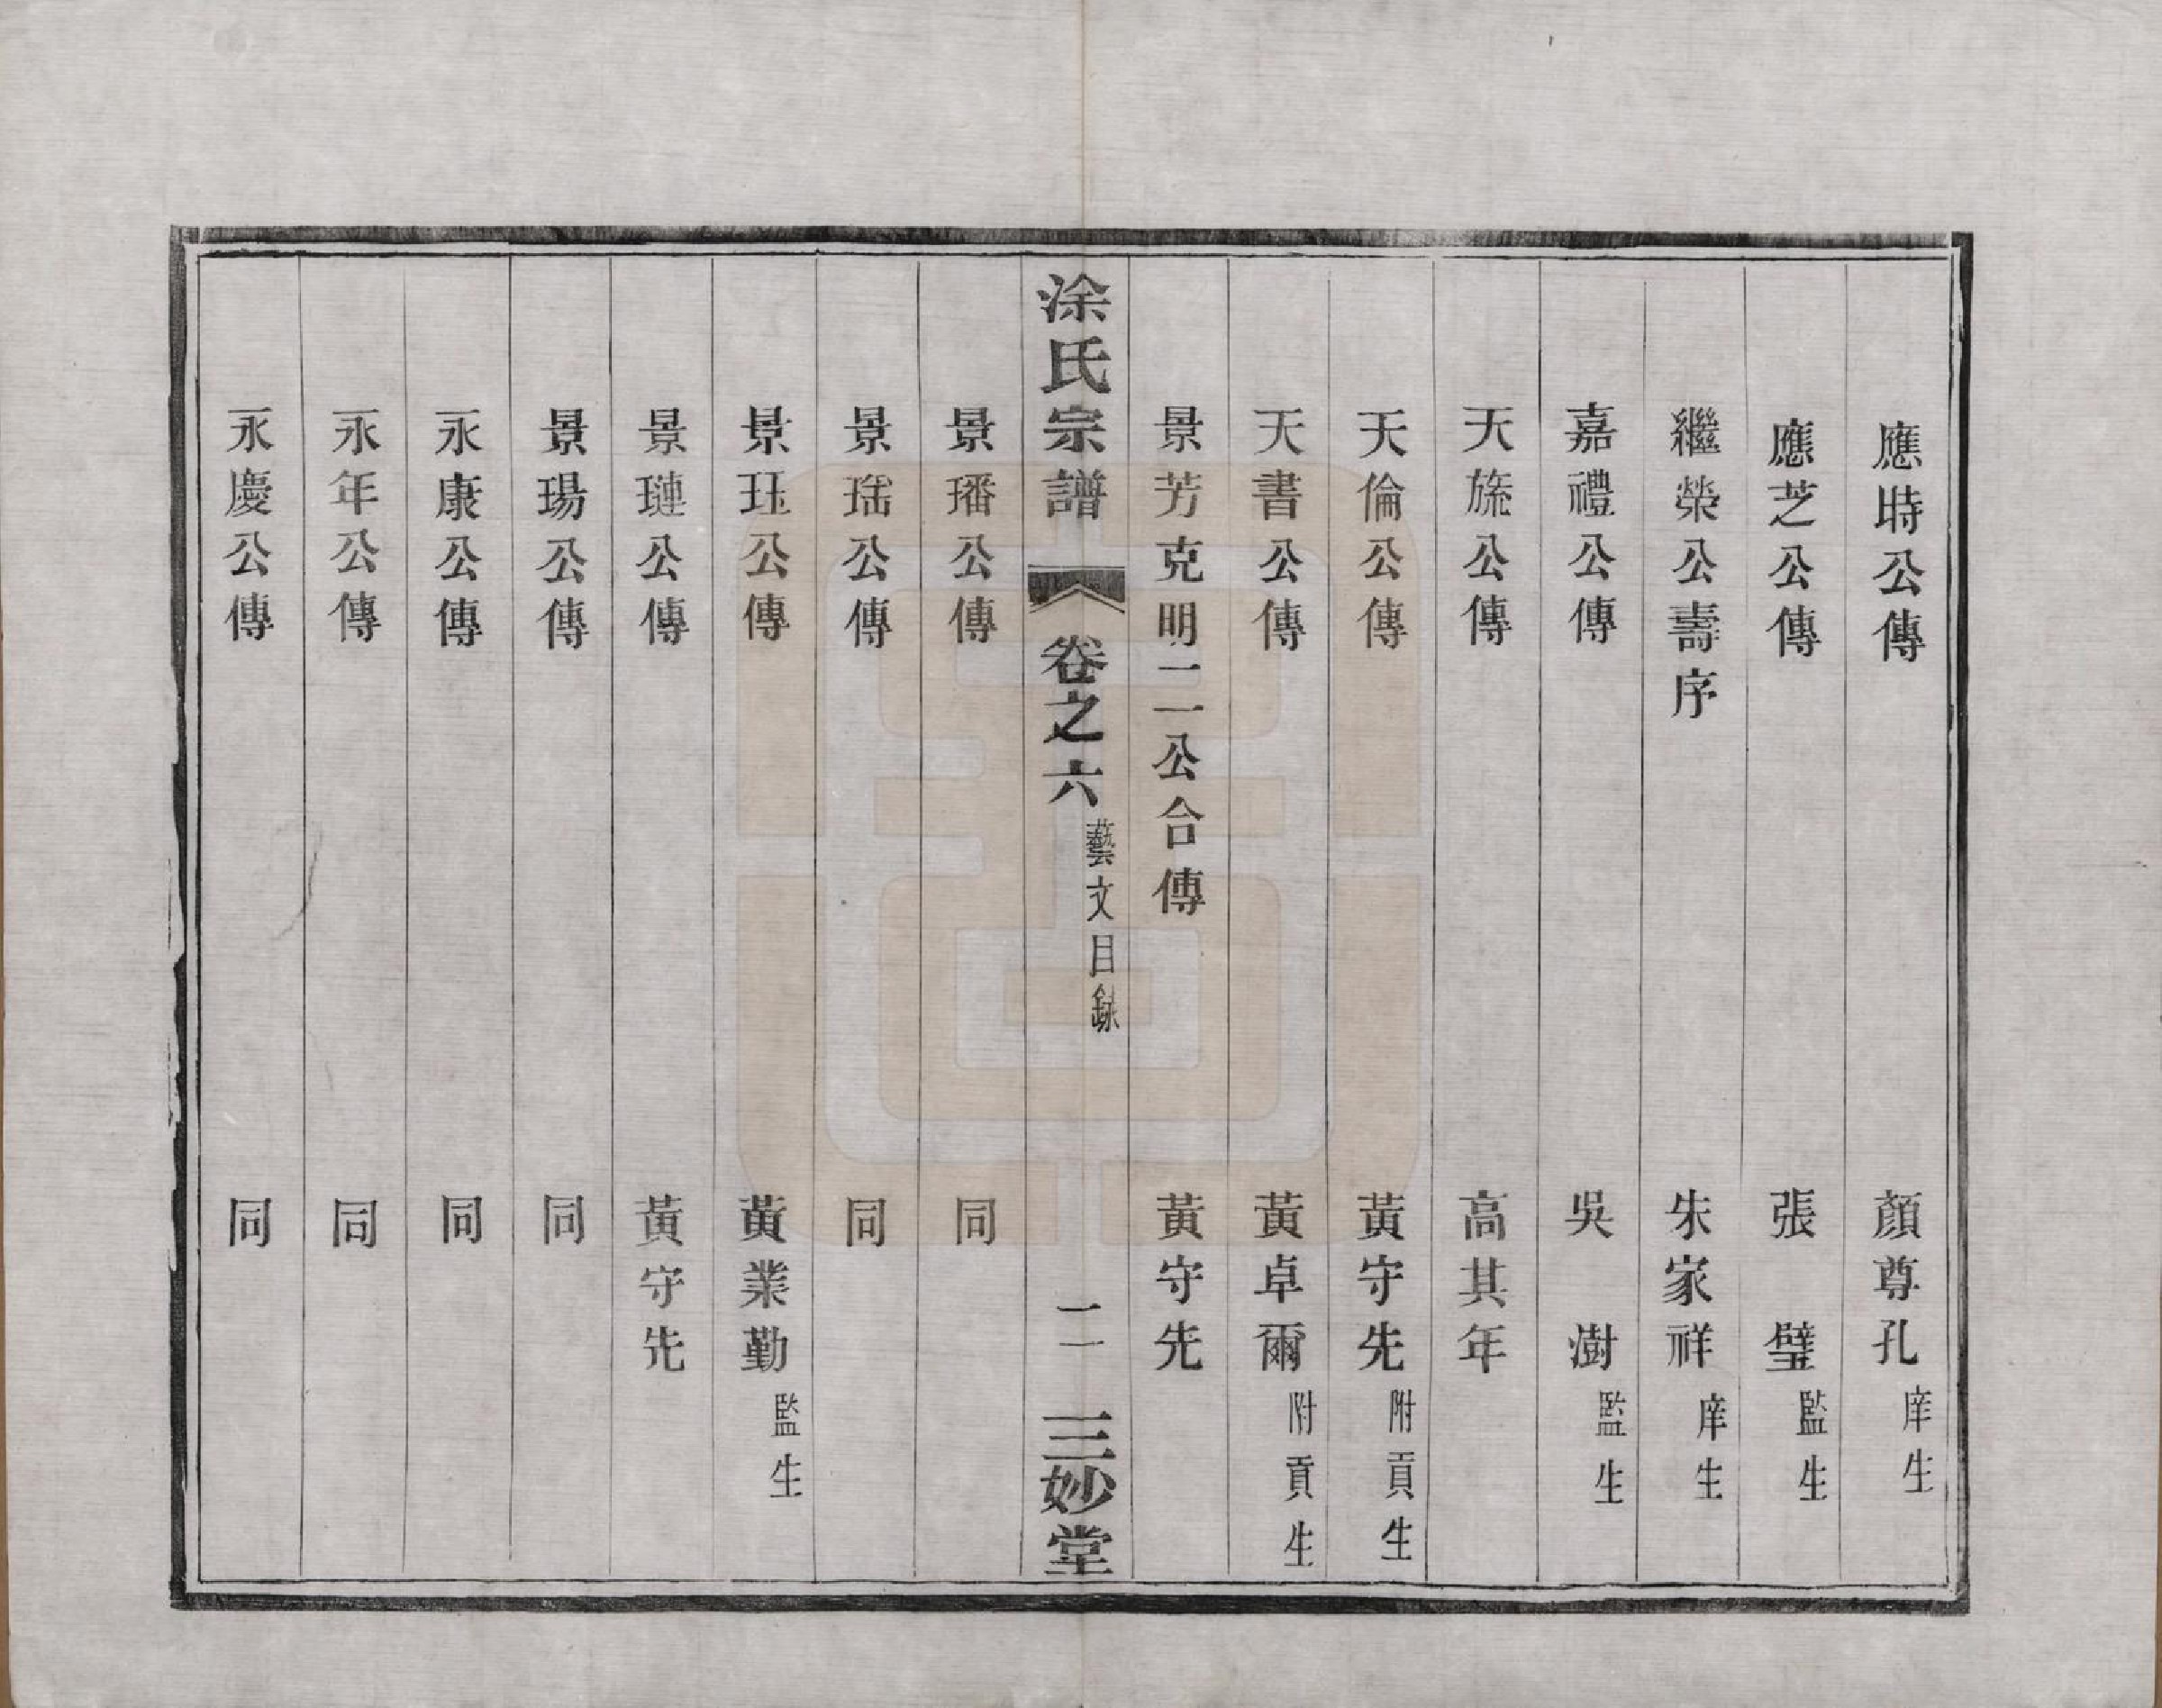 應時公傳　顏尊孔庠生
應芝公傳　張璧監生
繼榮公壽序　朱家祥庠生
嘉禮公傳　吳澍監生
天旒公傳　高其年
天倫公傳　黃守先附貢生
天書公傳　黃卓爾附貢生
景芳克明二公合傳　黃守先
涂氏宗譜　卷之六藝文目錄　二　三妙堂
景璠公傳　同
景瑤公傳　同
景珏公傳　黃業勤監生
景璉公傳　黃守先
景瑒公傳　同
永康公傳　同
永年公傳　同
永慶公傳　同